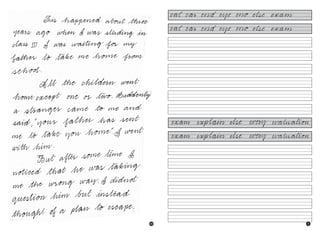 This happened about three
years ago when I was studing in
class III. I was waiting for my
father to take me home from
school.
All the children went
home except one or two. Suddenly
a stranger came to me and
said, "your father has sent
me to take you home" I went
with him.
But after some time I
noticed that he was taking
me the wrong way. I did not
question him but instead
thought of a plan to escape.
eat ear end eye eno else exam
eat ear end eye eno else exam
exam explain else essay evaluation
exam explain else essay evaluation